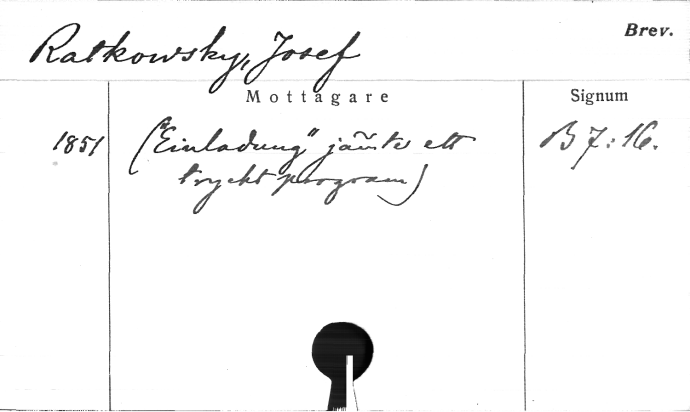 Ratkowsky, Josef
Brev.
Mottagare
Signum
1851
("Einladung" jämte ett
tryckt program)
B 7:16.